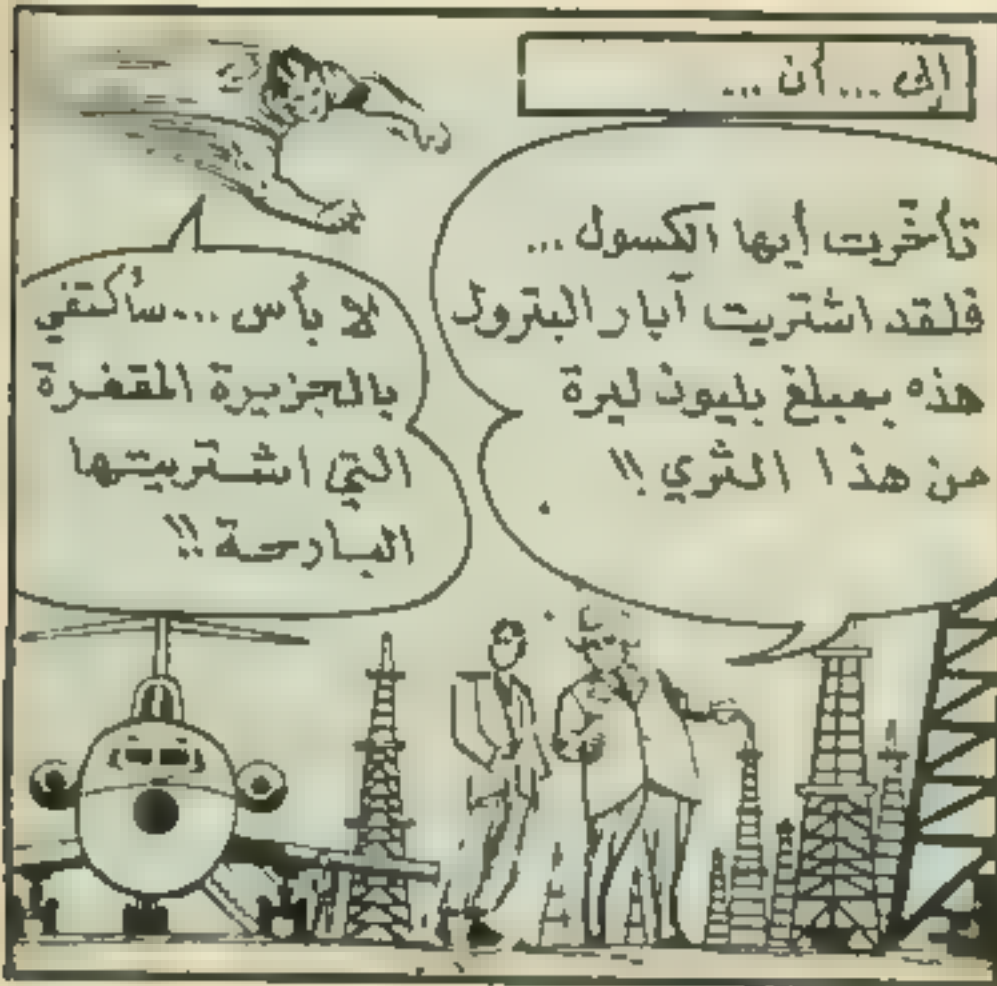 إلى ... أن ...
تأخّرت أيها الكسول ...
فلقد اشتريت آبار البترول
هذه بمبلغ بليون ليرة
من هذا الثري !!
لا بأس ... سأكتفي
بالجزيرة المقفرة
التي اشتريتها
البارحة !!